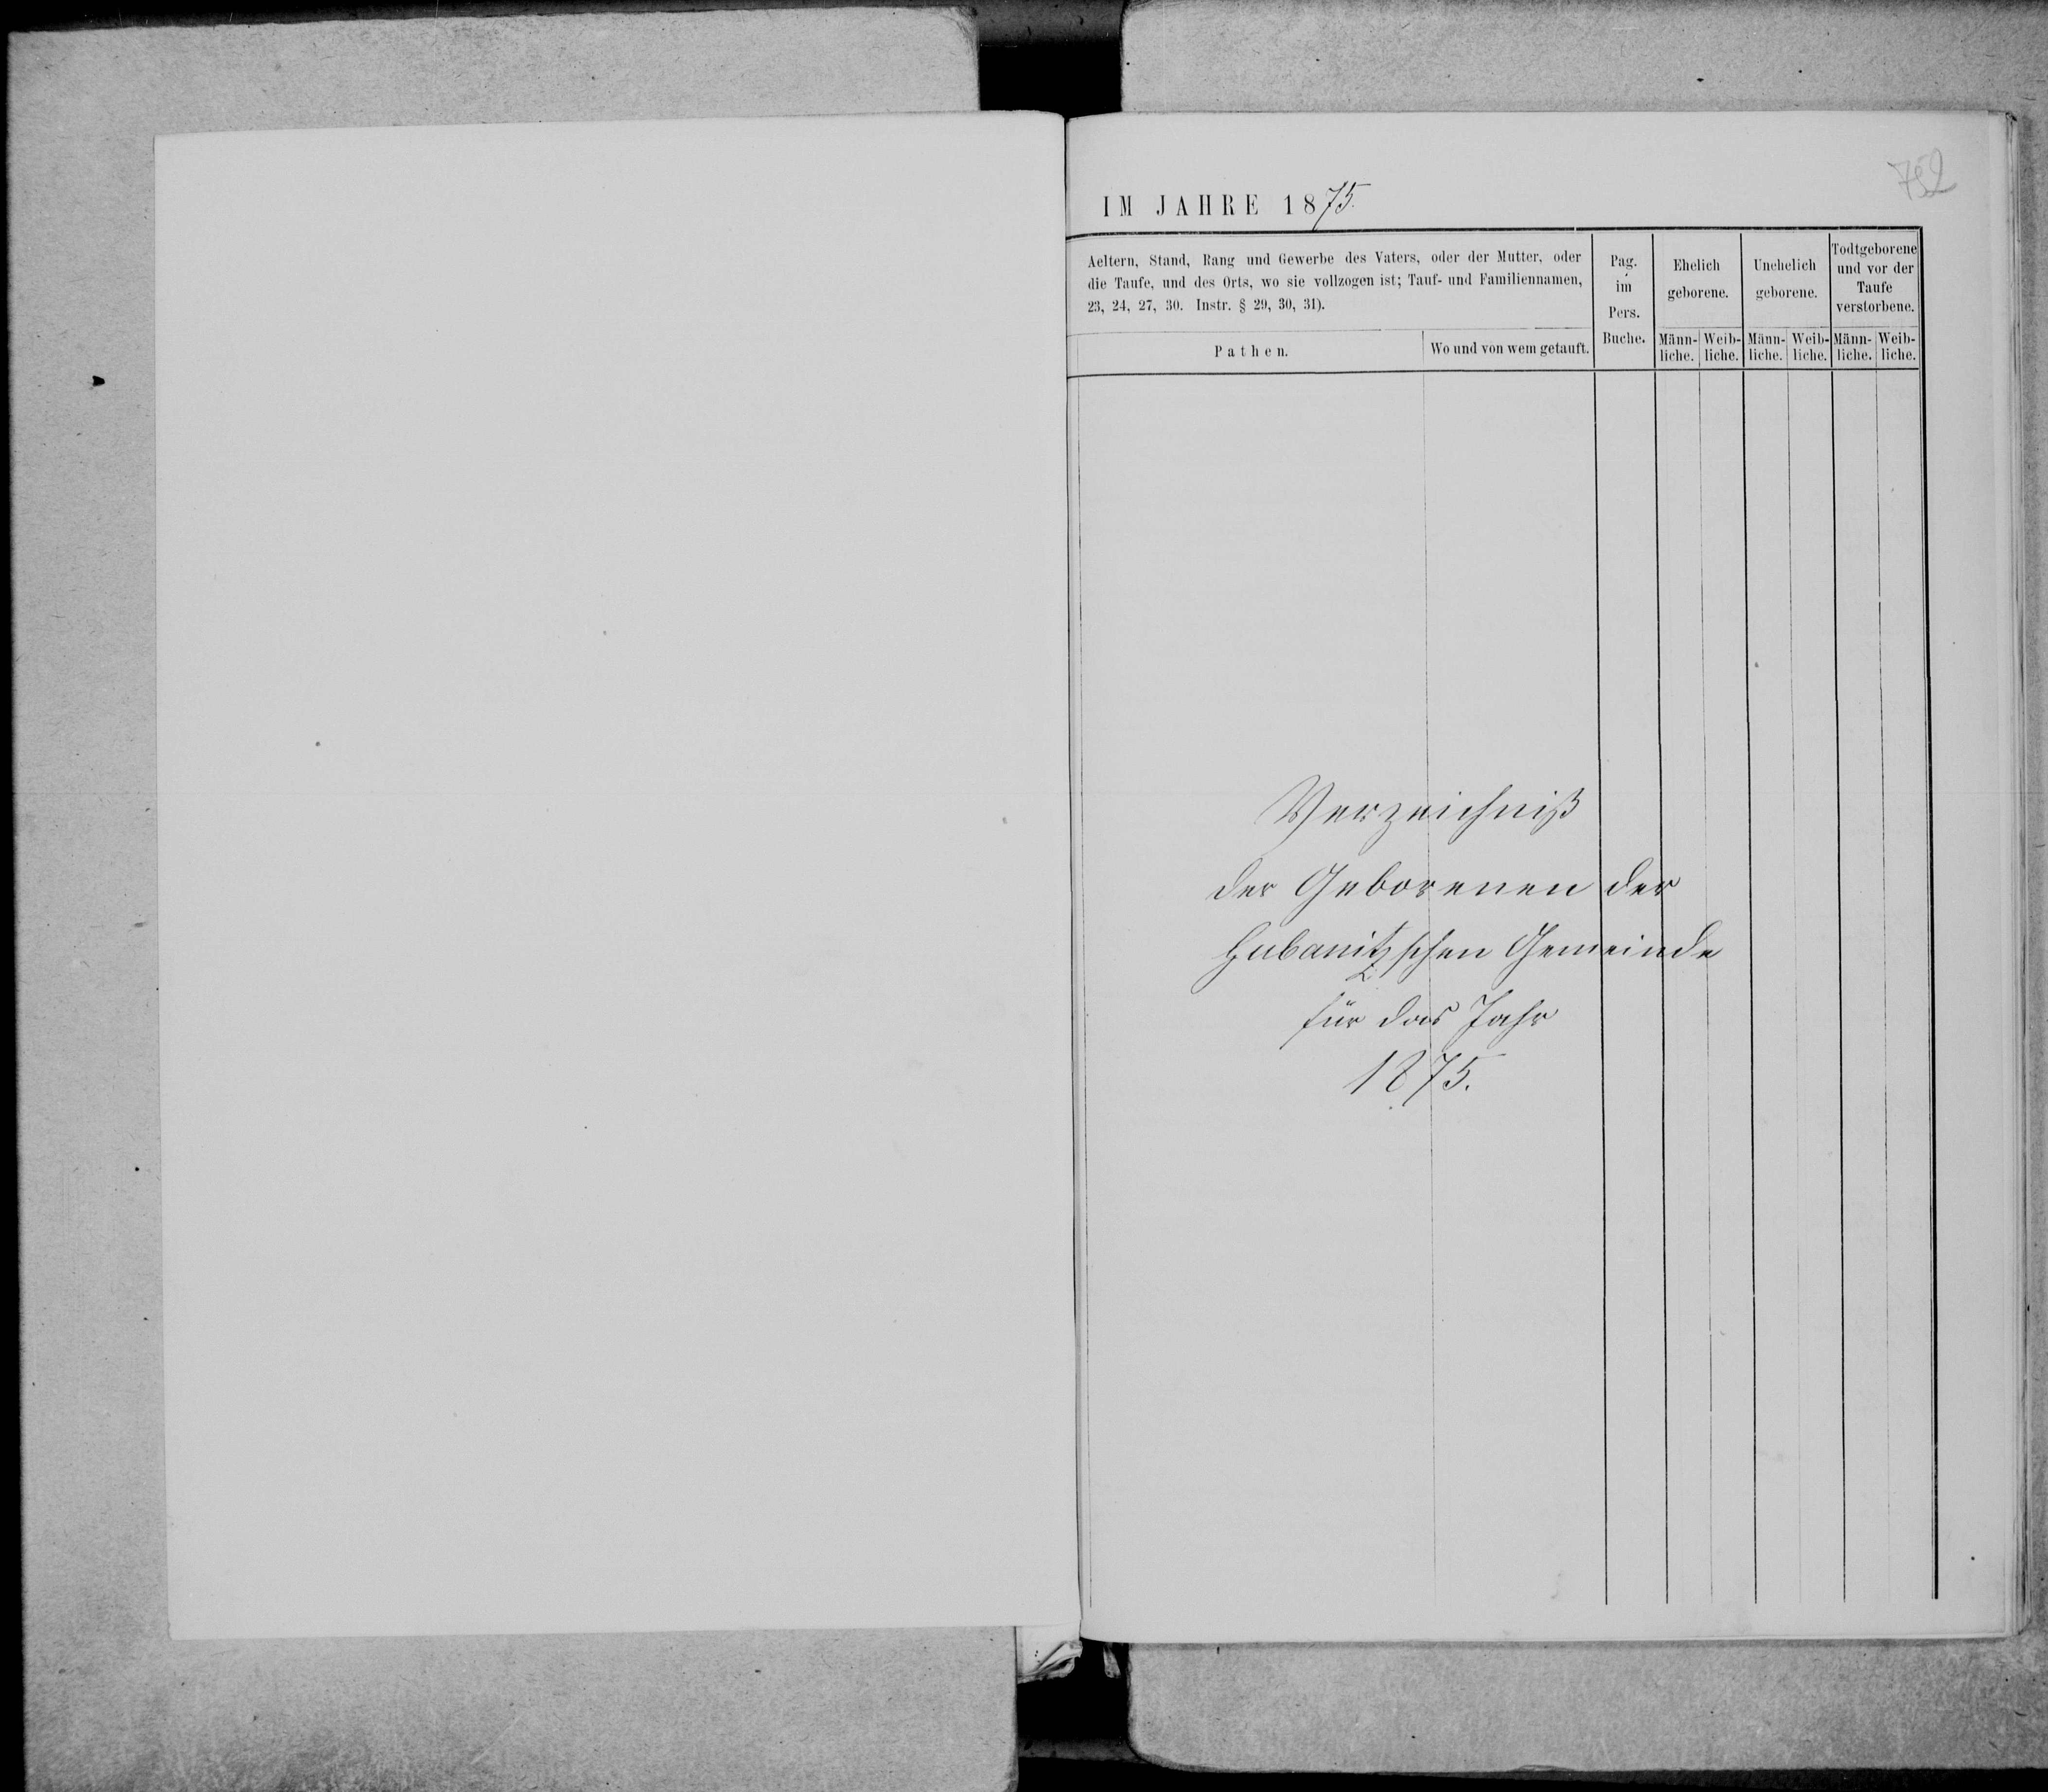 752
IM JAHRE 1875.
Aeltern, Stand, Rang und Gewerbe des Vaters, oder der Mutter, oder
die Taufe, und des Orts, wo sie vollzogen ist; Tauf- und Familiennamen,
23, 24, 27, 30. Instr. § 29, 30, 31).
Pathen.
Wo und von wem getauft.
Pag.
im
Pers.
Buche.
Ehelich
geborene.
Männ-
liche.
Weib-
liche.
Unehelich
geborene.
Männ-
liche.
Weib-
liche.
Todtgeborene
und vor der
Taufe
verstorbene.
Männ-
liche.
Weib-
liche.
Verzeichniß
der Geborenen der
Hubanitzschen Gemeinde
für das Jahr
1875.